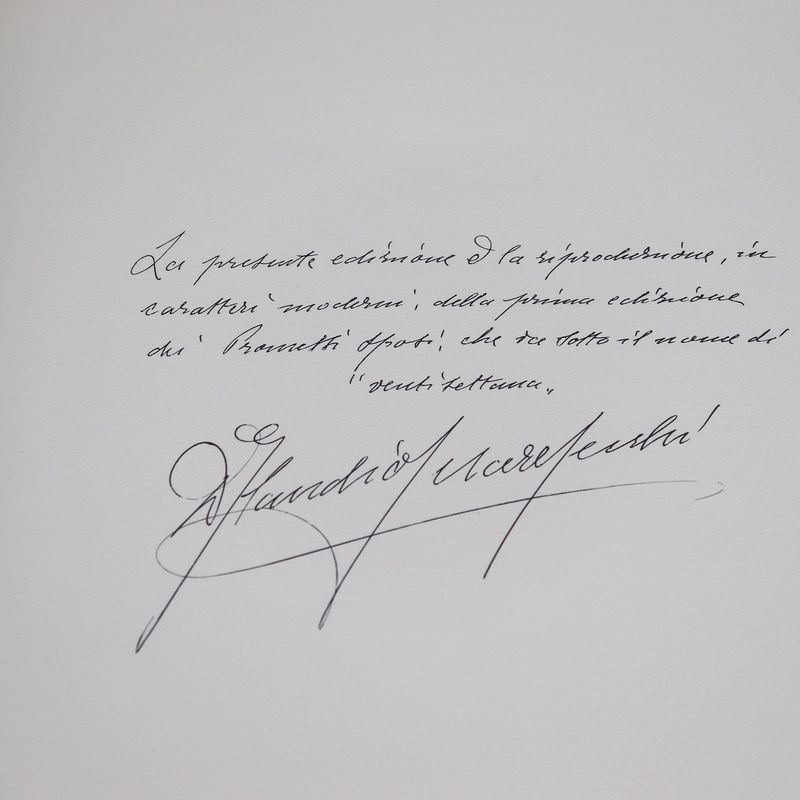 La presente edizione è la riproduzione, in
caratteri moderni, della prima edizione
dei Promessi Sposi, che va sotto il nome di
"ventisettana"